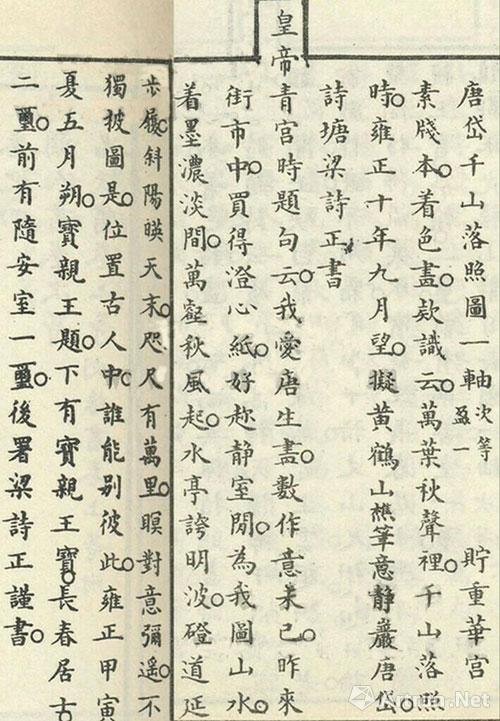 唐岱千山落照圖一軸次等盈一　貯重華宮
素牋本着色畫款識云萬葉秋聲裡。千山落照
時。雍正十年九月望。擬黃鶴山樵筆意靜巖唐岱。
詩塘梁詩正書
皇帝青宮時題句云。我愛唐生畫數作意未已。昨來
街市中。買得澄心紙。好趁静室閒。為我圖山水。
着墨濃淡間。萬壑秋風起。水亭誇明波。磴道延
步履。斜陽暎天末。咫尺有萬里。瞑對意彌遙。不
獨披圖是。位置古人中。誰能别彼此。雍正甲寅
夏五月朔。寶親王題。下有寶親王寶。長春居古
二璽。前有隨安室一璽。後署梁詩正謹書。
Artron.Net